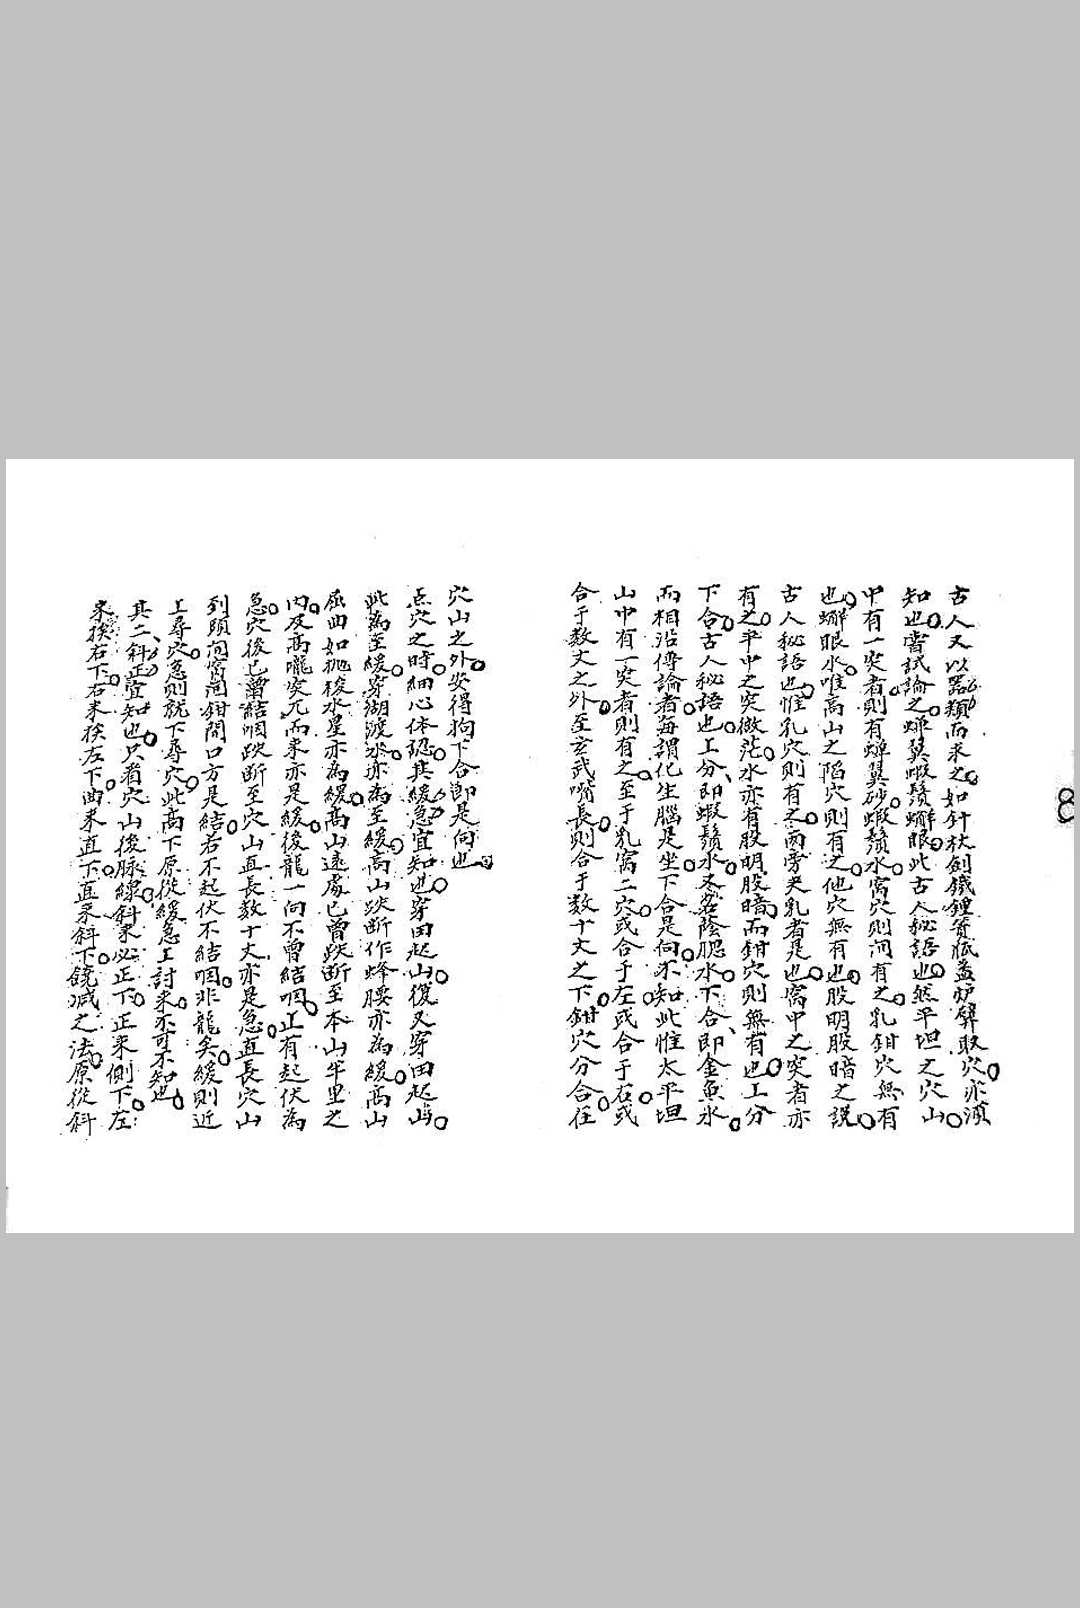 古人又以器類而求之如針杴劍鐵鍾背瓶蓋炉壁取穴亦須
知也嘗試論之蟬翼蝦鬚蠏眼此古人秘語也然平坦之穴山
中有一突者則有蟬翼砂蝦鬚水窩穴則间有之乳鉗穴無有
也蠏眼水唯高山之陷穴則有之他穴無有也股明股暗之説
古人秘語也惟乳穴則有之両旁夹乳者是也窩中之突者亦
有之平中之突微茫水亦有股明股暗而鉗穴則無有也上分
下合古人秘語也上分即蝦鬚水又名蔭腮水下合即金魚水
而相沿傳論者每謂化生腦是坐下合是向不知此惟太平坦
山中有一突者則有之至于乳窩二穴或合于左或合于右或
合于数丈之外至玄武嘴長則合于数十丈之下鉗穴分合在
穴山之外安得拘下合即是向也
点穴之時細心体認其緩急宜知也穿田起山復又穿田起山
此為至緩穿湖渡水亦為至緩高山跌断作蜂腰亦為緩高山
屈曲如抛梭水星亦為緩高山遠處已曾跌断至本山半里之
内及高嚨突兀而来亦是緩後龍一向不曾結咽止有起伏為
急穴後已曾結咽跌断至穴山直長数十丈亦是急直長穴山
到頭向窩向鉗開口方是結若不起伏不結咽非龍矣緩則近
上尋穴急則就下尋穴此高下原從緩急上討来不可不知也
其二斜正宜知也只看穴山後脉線斜来必正下正来側下左
来挨右下右来挨左下曲来直下直来斜下饒减之法原從斜
8